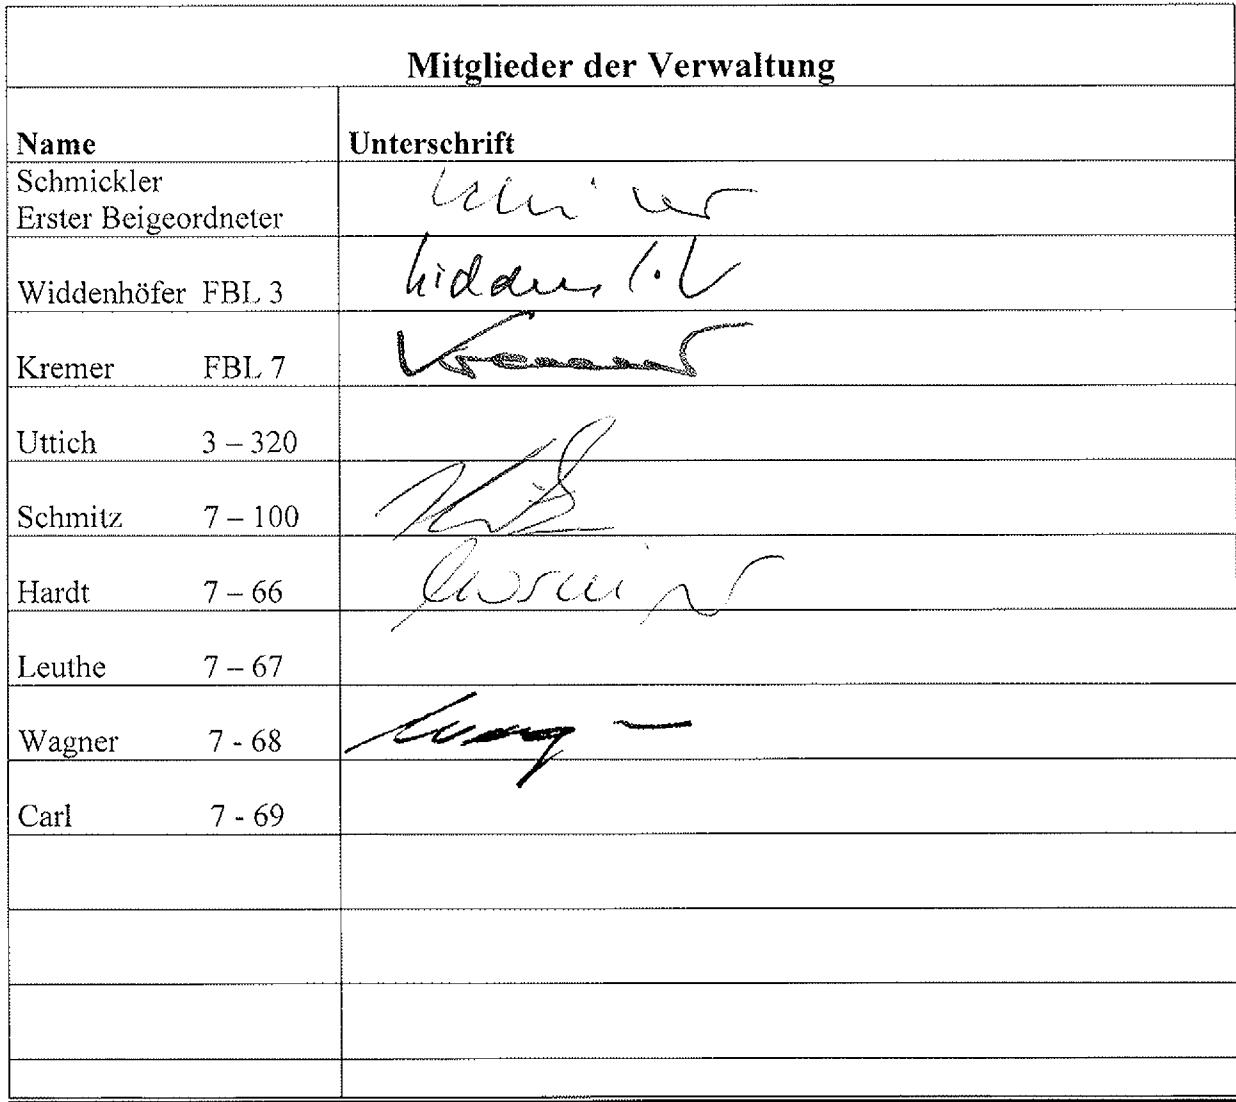 Mitglieder der Verwaltung
Name Unterschrift
Schmickler
Erster Beigeordneter
Widdenhöfer FBL 3
Kremer FBL 7 Kremer
Uttich 3 – 320
Schmitz 7 – 100
Hardt 7 – 66
Leuthe 7 – 67
Wagner 7 - 68
Carl 7 - 69